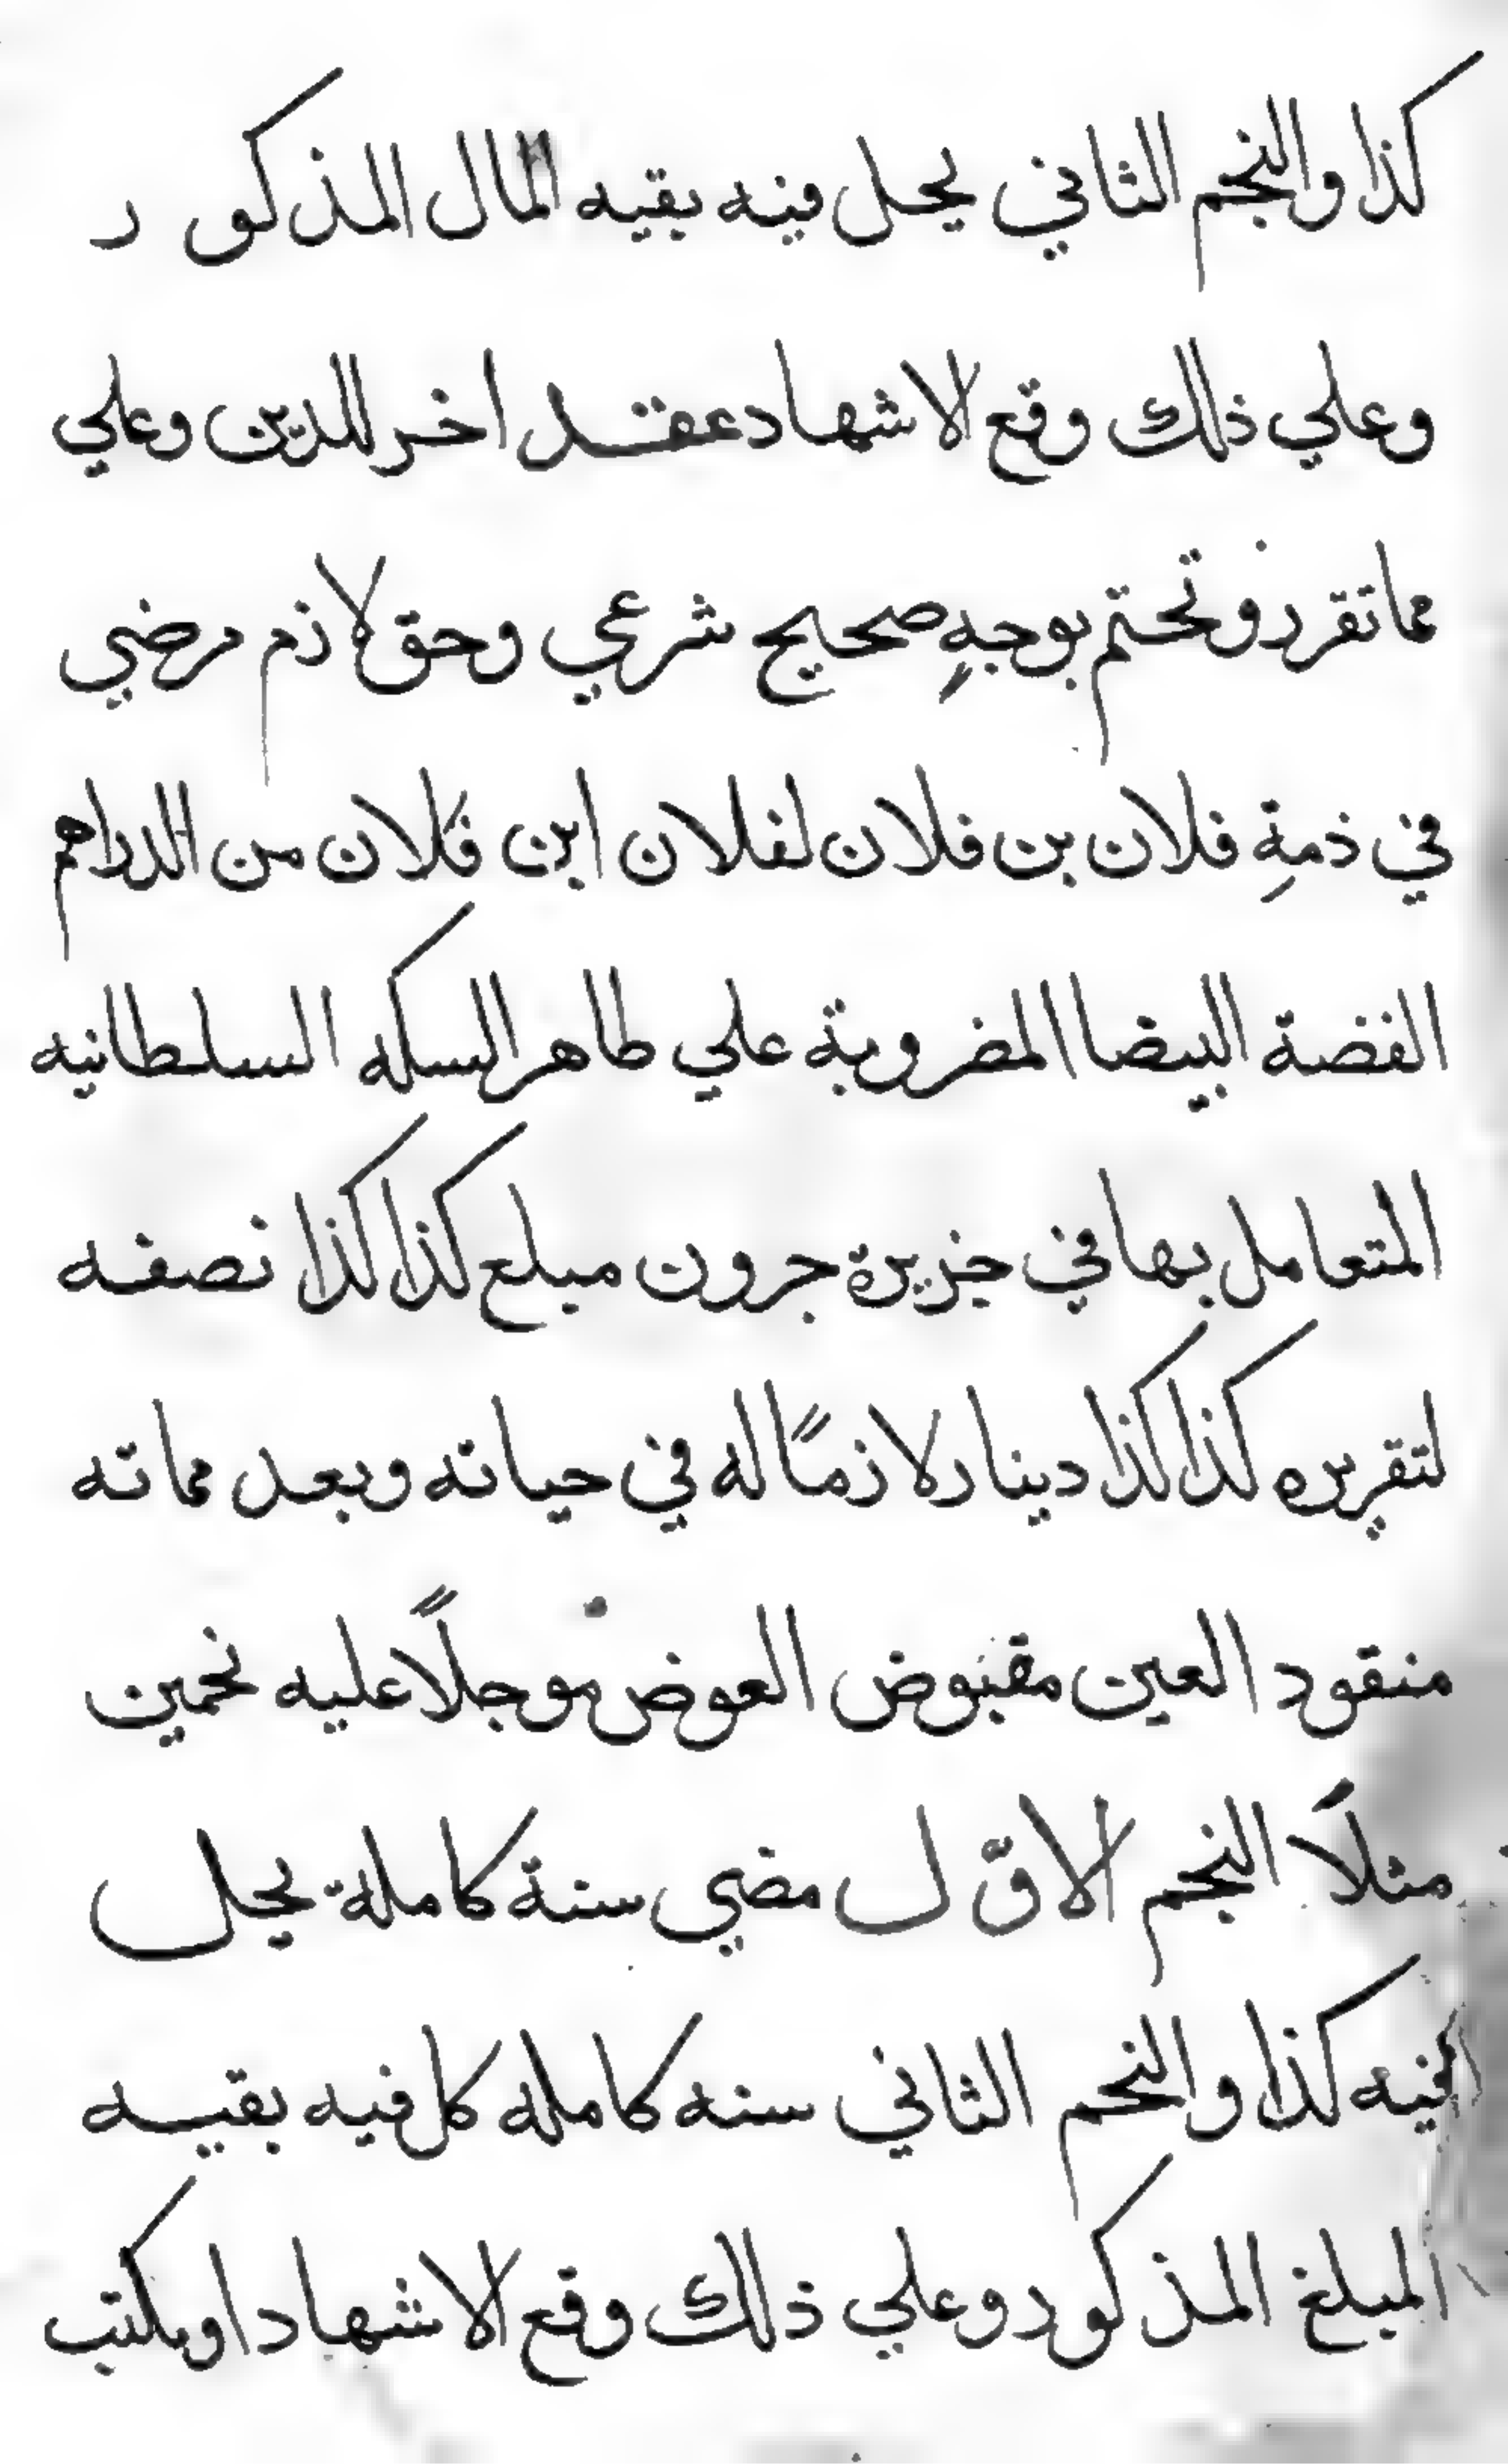 كذا والنجم الثاني يحل فيه بقيه المال المذكور
وعلي ذلك وقع الاشهاد عقد اخر للدين وعلي
مما تقرر وتحتم بوجهٍ صحيح شرعي وحق لازم مرضي
في ذمةِ فلان بن فلان لفلان ابن فلان من الدراهم
الفضة البيضا المضروبة علي طاهر السكه السلطانيه
المتعامل بها في جزيرة جرون مبلع كذا كذا نصفه
لتقريره كذا كذا دينار لازمًا له في حياته وبعد مماته
منقود العين مقبوض العوض موجلًا عليه نحمين
مثلًا النجم الاوّل مضي سنة كاملة يحل
فيه كذا والنحم الثاني سنه كامله كل فيه بقيه
المبلغ المذكور وعلي ذلك وقع الاشهاد او يكتب